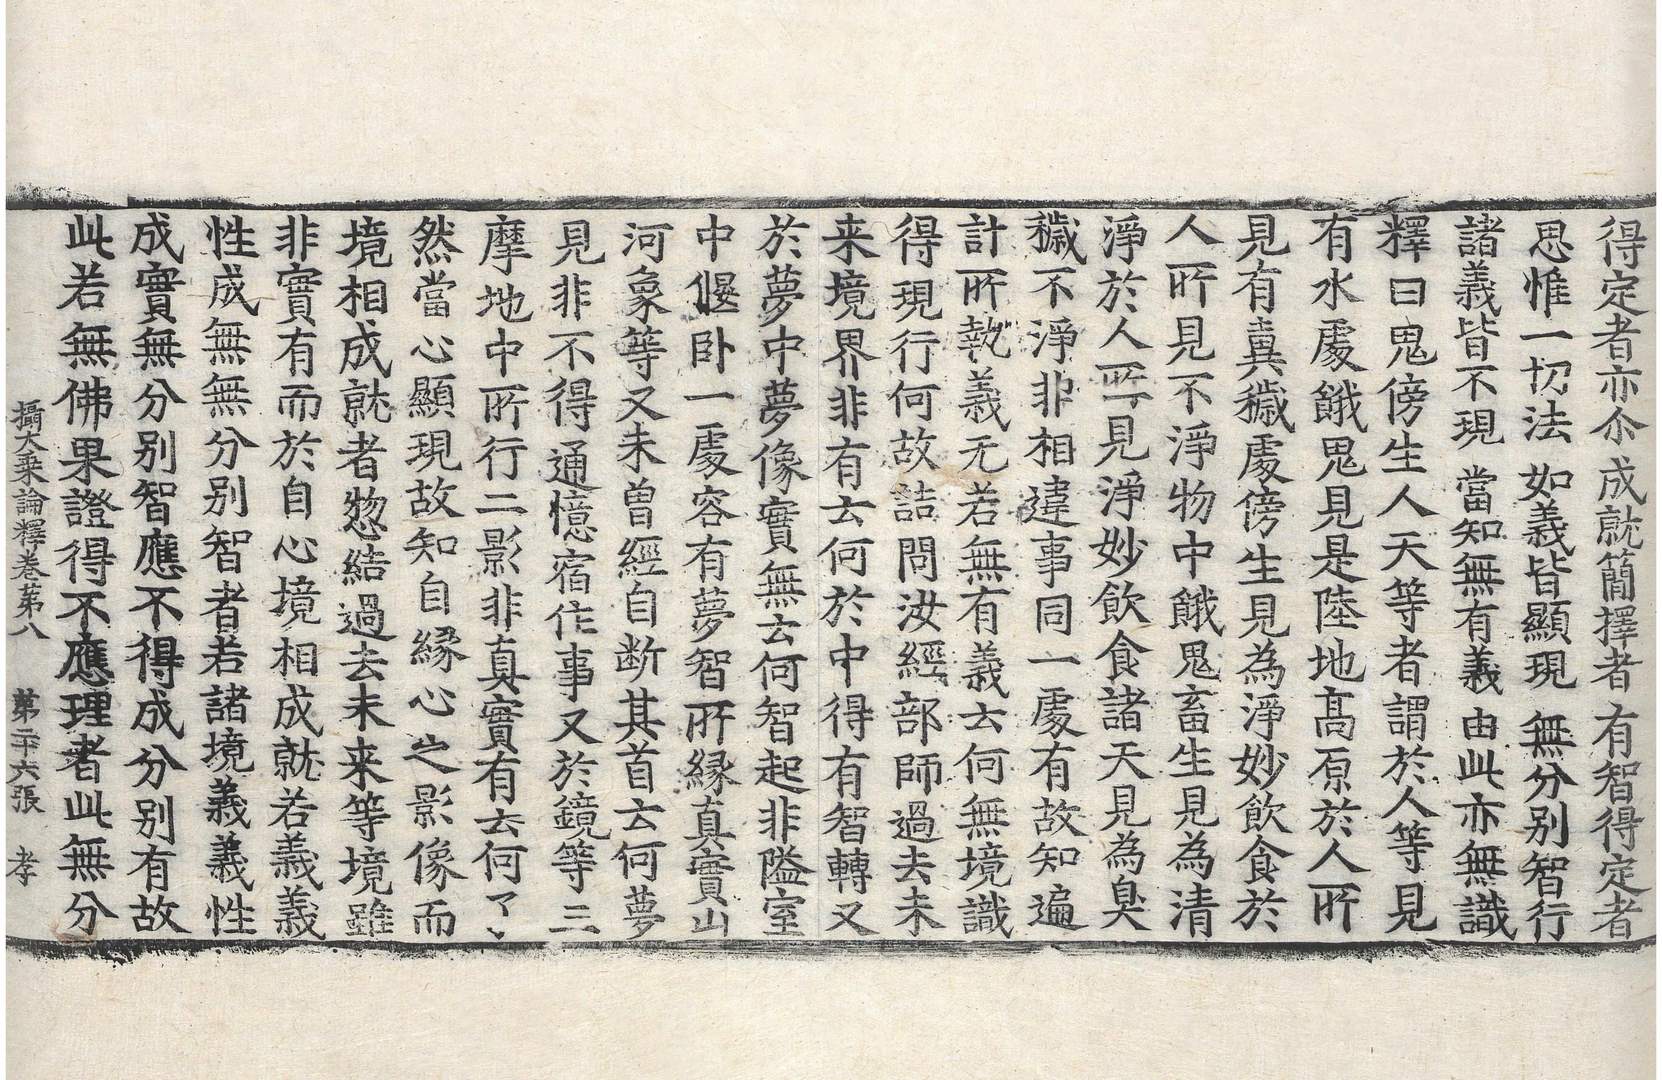 得定者亦尒 成就簡擇者 有智得定者
思惟一切法 如義皆顯現 無分別智行
諸義皆不現 當知無有義 由此亦無識
釋曰鬼傍生人天等者謂於人等見
有水處餓鬼見是陸地高原於人所
見有糞穢處傍生見為淨妙飲食於
人所見不淨物中餓鬼畜生見為清
淨於人所見淨妙飲食諸天見為臭
穢不淨非相違事同一處有故知遍
計所執義无若無有義云何無境識
得現行何故詰問汝經部師過去未
来境界非有云何於中得有智轉又
於夢中夢像實無云何智起非隘室
中偃卧一處容有夢智所緣真實山
河象等又未曾經自断其首云何夢
見非不得通憶宿住事又於鏡等三
摩地中所行二影非真實有云何了
然當心顯現故知自緣心之影像而
境相成就者惣結過去未来等境雖
非實有而於自心境相成就若義義
性成無無分別智者若諸境義義性
成實無分別智應不得成分別有故
此若無佛果證得不應理者此無分
攝大乘論釋卷第八 第二十六張 孝